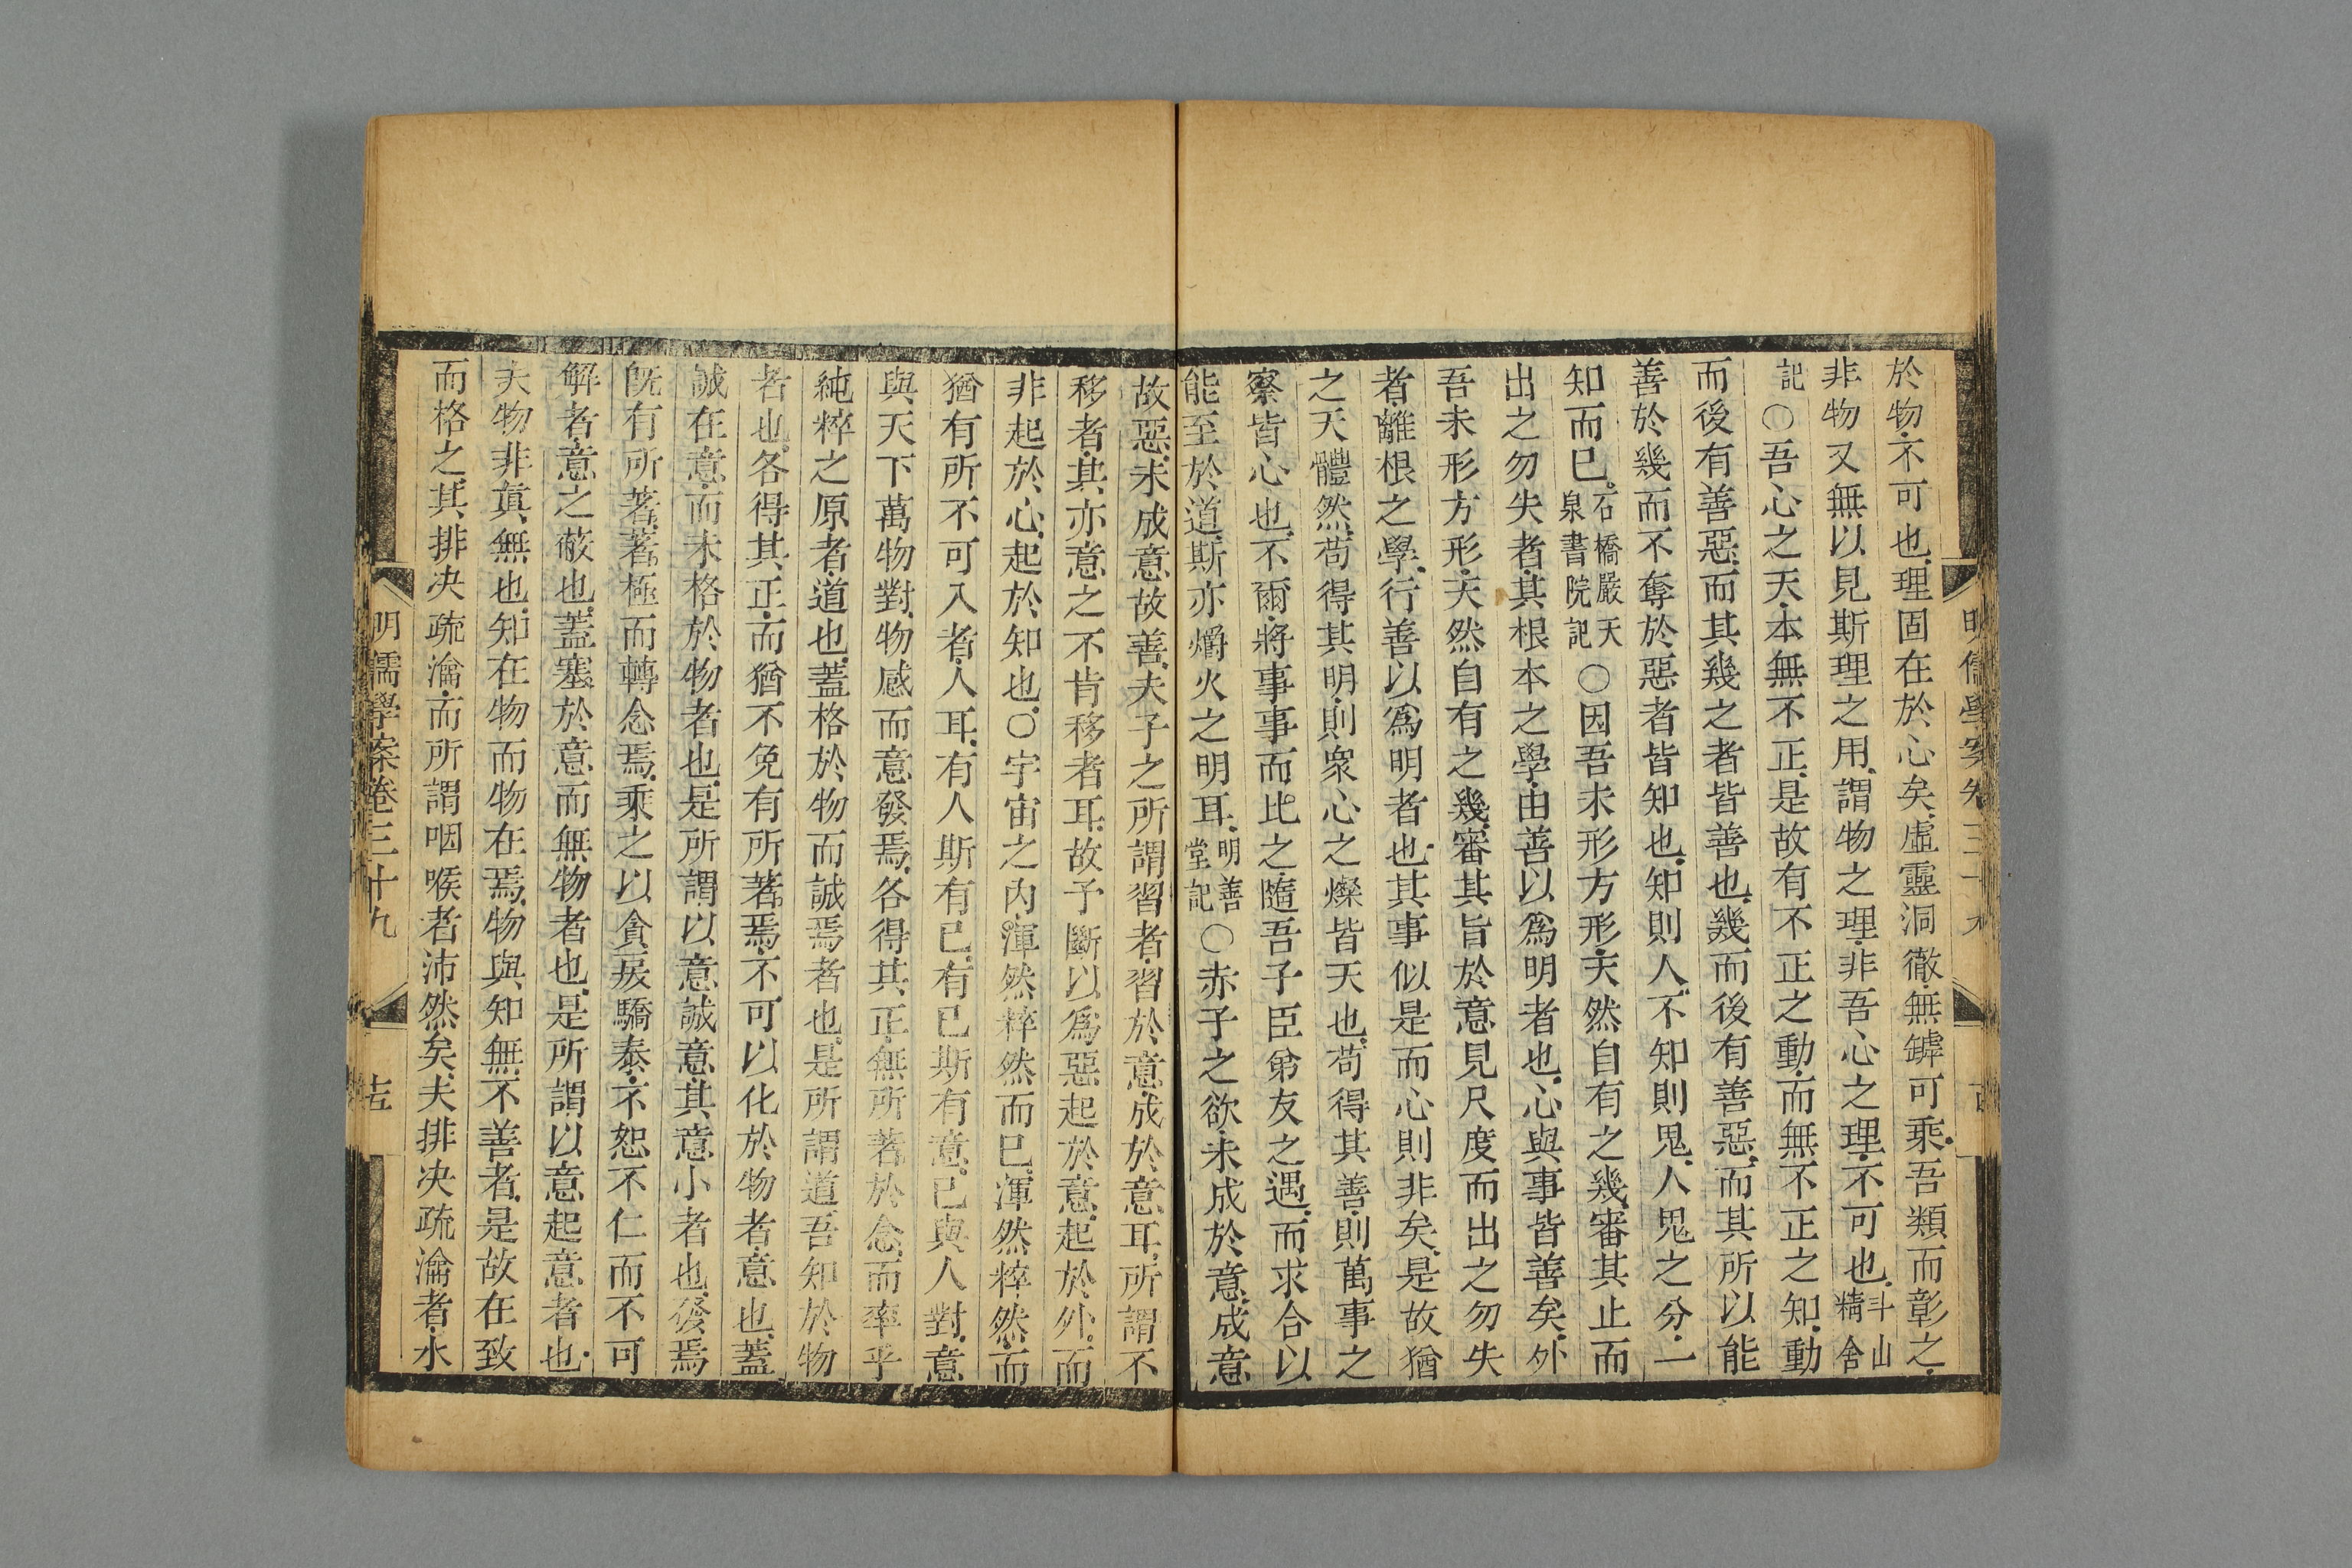 明儒學案卷三十九
於物不可也理固在於心矣虛靈洞徹無罅可乘吾類而彰之
非物又無以見斯理之用謂物之理非吾心之理不可也斗山精舍
記○吾心之天本無不正是故有不正之動而無不正之知動
而後有善惡而其幾之者皆善也幾而後有善惡而其所以能
善於幾而不奪於惡者皆知也知則人不知則鬼人鬼之分一
知而已石橋嚴天泉書院記○因吾未形方形天然自有之幾審其止而
出之勿失者其根本之學由善以爲明者也心與事皆善矣外
吾未形方形天然自有之幾審其旨於意見尺度而出之勿失
者離根之學行善以爲明者也其事似是而心則非矣是故猶
之天體然苟得其明則衆心之燦皆天也苟得其善則萬事之
察皆心也不爾將事事而比之隨吾子臣弟友之遇而求合以
能至於道斯亦爝火之明耳明善堂記○赤子之欲未成於意成意
故惡未成意故善夫子之所謂習者習於意成於意耳所謂不
移者其亦意之不肯移者耳故予斷以爲惡起於意起於外而
非起於心起於知也○宇宙之內渾然粹然而已渾然粹然而
猶有所不可入者人耳有人斯有己有己斯有意己與人對意
與天下萬物對物感而意發焉各得其正無所著於念而率乎
純粹之原者道也蓋格於物而誠焉者也是所謂道吾知於物
者也各得其正而猶不免有所著焉不可以化於物者意也蓋
誠在意而未格於物者也是所謂以意誠意其意小者也發焉
既有所著著極而轉念焉乘之以貪戾驕泰不恕不仁而不可
解者意之蔽也蓋塞於意而無物者也是所謂以意起意者也
夫物非真無也知在物而物在焉物與知無不善者是故在致
而格之其排决疏瀹而所謂咽喉者沛然矣夫排决疏瀹者水
明儒學案卷三十九